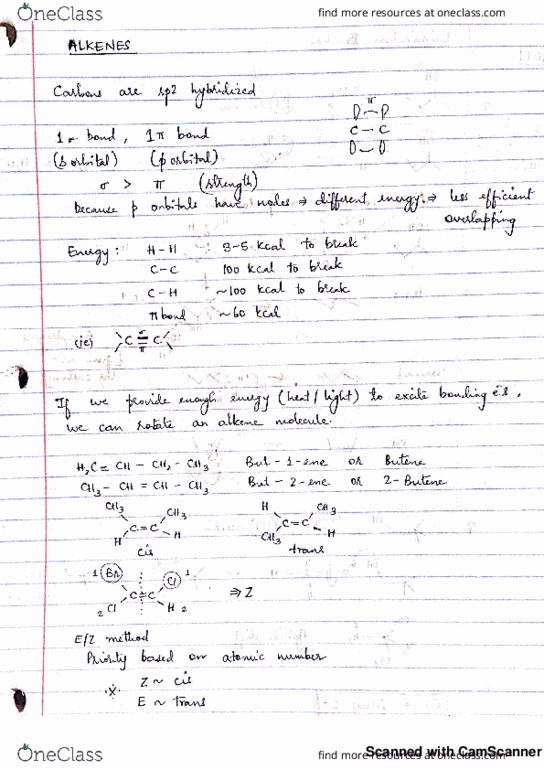 OneClass
find more resources at oneclass.com
ALKENES
Carbons are sp2 hybridized
1 σ bond , 1 π bond
(s orbital) (p orbital)
σ > π (strength)
π
C - C
because p orbitals have nodes ⇒ different energy ⇒ less efficient
overlapping
Energy : H - H : 3-5 kcal to break
C - C 100 kcal to break
C - H ~100 kcal to break
π bond ~60 kcal
(ie) C = C
If we provide enough energy (heat / light) to excite bonding e.s ,
we can rotate an alkene molecule.
H2C = CH - CH2 - CH3 But - 1 - ene or Butene
CH3 - CH = CH - CH3 But - 2 - ene or 2 - Butene
CH3 CH3 H CH3
C = C C = C
H H CH3 H
cis trans
1 Br Cl 1
C = C ⇒ Z
2 Cl H 2
E/Z method
Priority based on atomic number
Z ~ cis
E ~ trans
OneClass
find more resources at oneclass.com
Scanned with CamScanner